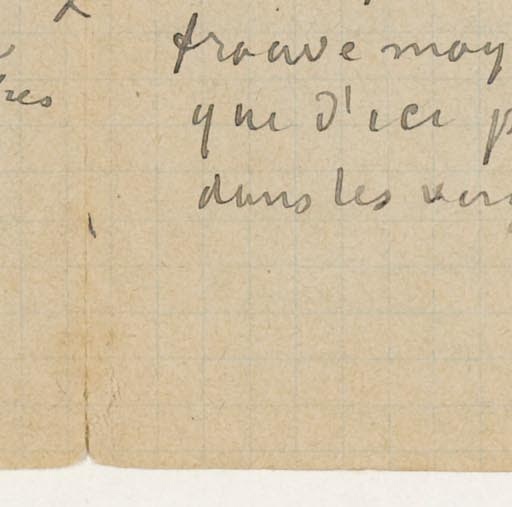 res
trouve moy
que d'ici p
dans les